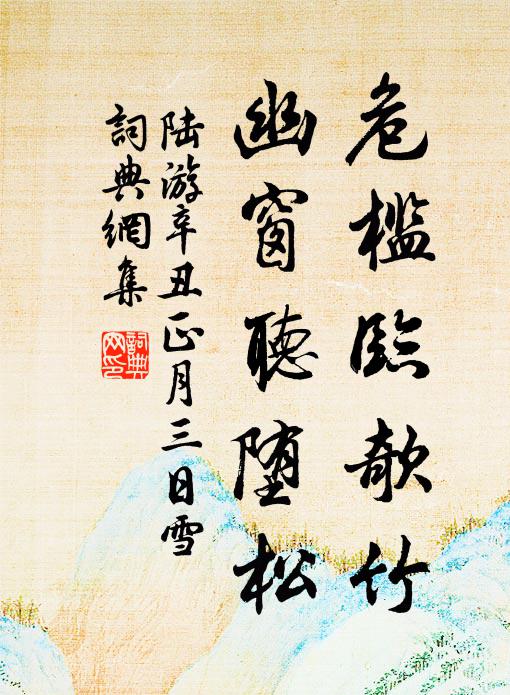 危檻臨欹竹
幽窗聽堕松
陆游辛丑正月三日雪
詞典網集
詞典網印